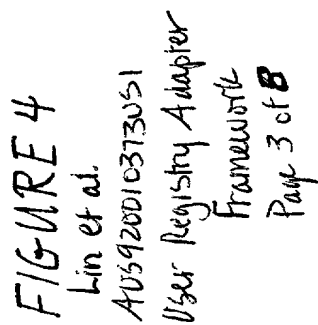 FIGURE 4
Lin et al.
AUS920010373US1
User Registry Adapter
Framework
Page 3 of 8